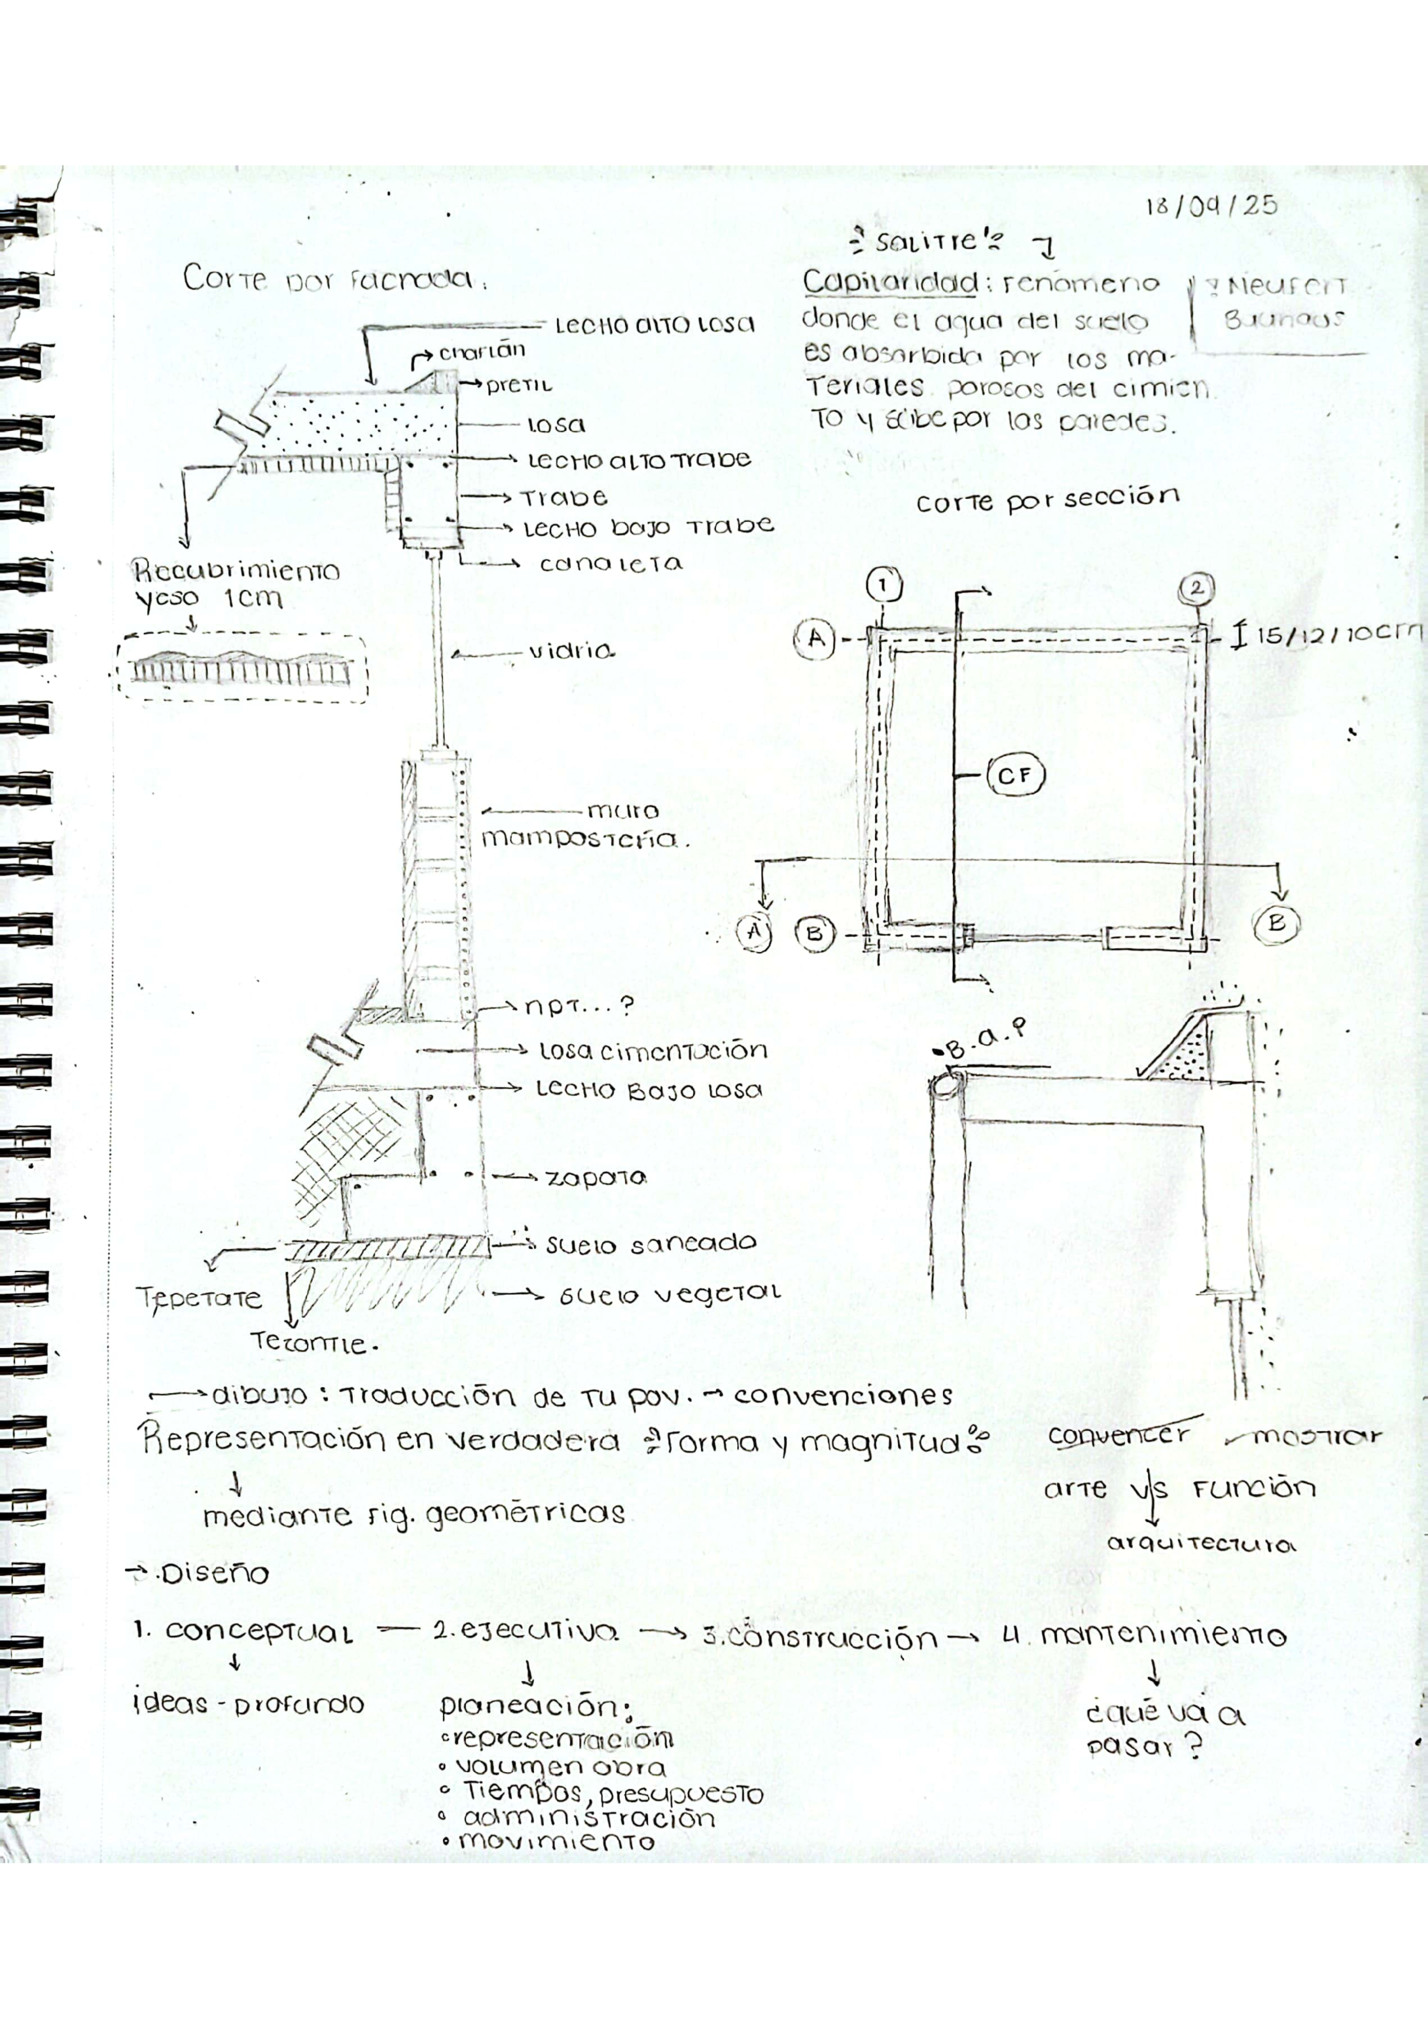 18/09/25
Corte por fachada.
LECHO alto losa
chaflán
pretil
losa
LECHO alto trabe
Trabe
LECHO bajo trabe
canaleta
Recubrimiento
yeso 1cm
vidrio
muro
mampostería.
npt...?
Losa cimentación
LECHO Bajo losa
zapata
suelo saneado
suelo vegetal
Tepetate
Tezontle.
salitre
Capilaridad: fenómeno
donde el agua del suelo
es absorbida por los ma-
teriales porosos del cimien
to y sube por las paredes.
Neufert
Bauhaus
corte por sección
1
2
A
15/12/10cm
CF
A
B
B
B.a.P
dibujo: traducción de tu pov. → convenciones
Representación en verdadera forma y magnitud
mediante fig. geométricas
convencer mostrar
arte v/s función
arquitectura
→ Diseño
1. conceptual — 2. ejecutivo → 3. construcción → 4. mantenimiento
ideas - profundo
planeación:
• representación
• volumen obra
• Tiempos, presupuesto
• administración
• movimiento
¿qué va a
pasar?